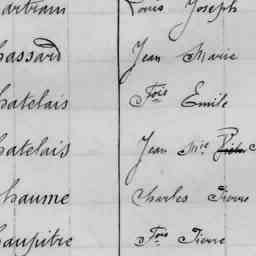 artrain Louis Joseph
hassard Jean Marie
hatelais Fois Emile
hatelais Jean Mie
haume Charles Pierre
haupitre Fois Pierre